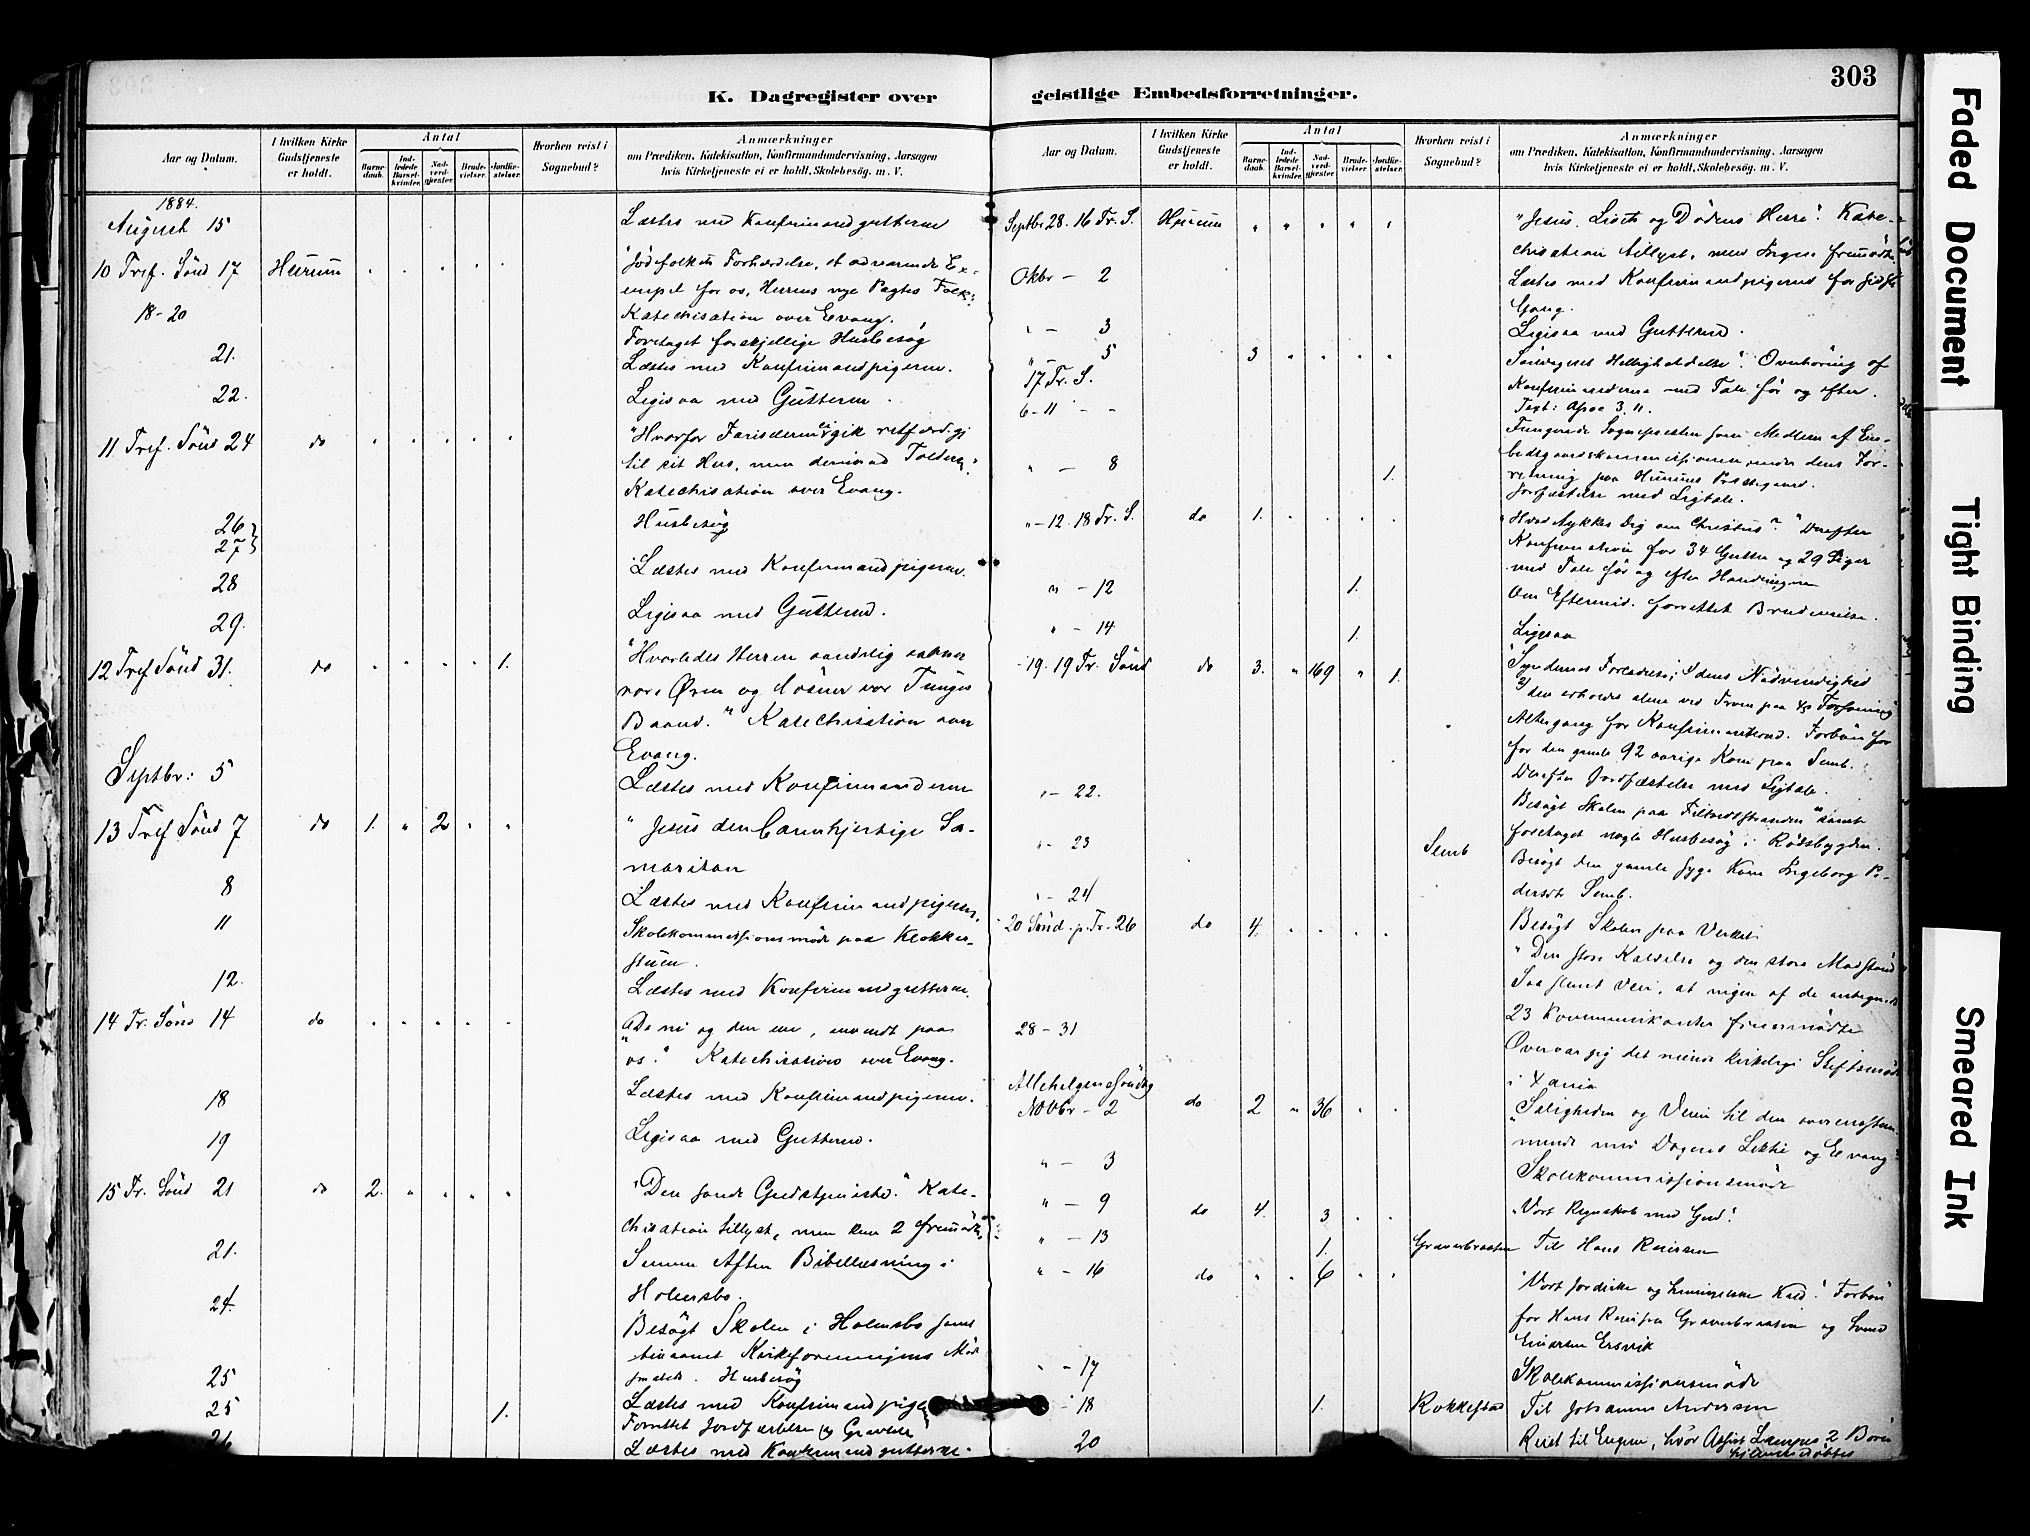 303
K. Dagregister over geistlige Embedsforretninger.
Aar og Datum.
I hvilken Kirke Gudstjeneste er holdt.
Antal
Barne-daab.
Ind-ledede Barsel-kvinder.
Nad-verd-gjester.
Brude-vielser.
Jordfæ-stelser.
Hvorhen reist i Sognebud?
Anmærkninger
om Prædiken, Katekisation, Konfirmandundervisning, Aarsagen
hvis Kirketjeneste ei er holdt, Skolebesøg. m. V.
1884.
August 15 Læstes med Konfirmandgutterne
10 Tref. Sönd 17 Hurum "Jødefolkets Forhærdelse, et advarende Ex-
empel for os, Herrens nye Pagtes Folk".
Katechisation over Evang.
18-20 Foretaget forskjellige Husbesøg
21. Læstes med Konfirmandpigerne.
22. Ligesaa med Gutterne.
11 Tref. Sönd 24 do "Hvorfor Farisæeren ei gik retfærdig
til sit Hus, men derimod Tolderen".
Katechisation over Evang.
26 27 Husbesøg
28 Læstes med Konfirmandpigerne.
29. Ligesaa med Gutterne.
12 Tref Sönd 31. do 1. "Hvorledes Herren aandelig aabner
vore Øren og løsner vor Tunges
Baand." Katechisation over
Evang.
Septbr: 5 Læstes med Konfirmanderne
13 Tref Sönd 7 do 1. " 2 " " "Jesus den barmhjertige Sa-
maritan
8 Læstes med Konfirmandpigerne.
11 Skolekommissionsmøde paa Klokker-
stuen.
12. Læstes med Konfirmandgutterne.
14 Tr. Sönd 14 do "De ni og den ene, anvendt paa
os." Katechisation over Evang.
18 Læstes med Konfirmandpigerne.
19 Ligesaa med Gutterne.
15 Tr. Sönd 21 do 2. "Den sande Gudstjeneste." Kate-
chisation tillyst, men kun 2 fremmødte.
21. Samme Aften Bibellæsning i
Holmsbo.
24. Besøgt Skolen i Holmsbo samt
Husbesøg
25 Læstes med Konfirmandpigerne
25 1. Forrettet Jordfæstelse
26 Læstes med Konfirmandgutterne.
Aar og Datum.
I hvilken Kirke Gudstjeneste er holdt.
Antal
Barne-daab.
Ind-ledede Barsel-kvinder.
Nad-verd-gjester.
Brude-vielser.
Jordfæ-stelser.
Hvorhen reist i Sognebud?
Anmærkninger
om Prædiken, Katekisation, Konfirmandundervisning, Aarsagen
hvis Kirketjeneste ei er holdt, Skolebesøg. m. V.
Septbr 28. 16 Tr. S. Hurum "Jesus Livets og Dødens Herre". Kate-
chisation tillyst, men Ingen fremmødte.
Okbr - 2 Læstes med Konfirmandpigerne for sidste
Gang.
" - 3 Ligesaa med Gutterne.
" - 5 17 Tr. S. 3 Søndagens Helligholdelse". Overhøring af
Konfirmanderne med Tale før og efter.
Text: Apoc 3, 11.
6-11 Fungerede Sognepresten som Medlem af Em-
bedsgaardskommissionen under dens For-
retning paa Hurums Prestegaard.
" - 8 1. Jordfæstelse med Ligtale.
" - 12. 18 Tr. S. do 1. "Hvad tykkes Dig om Christus?" Derefter
Konfirmation for 34 Gutter og 29 Piger
med Tale før og efter Handlingen
" - 12 1. Om Eftermid. forrettet Brudevielse.
" - 14 1. Ligesaa
19. 19 Tr. Sönd do 3. " 169 " 1. "Syndernes Forladelse; 1) dens Nødvendighed
2) den erholdes alene ved Troen paa Forsoning"
Altergang for Konfirmanterne. Forbøn for
for den gamle 92 aarige Kone paa Semb.
Derefter Jordfæstelse med Ligtale.
" - 22. Besøgt Skolen paa Filtvedtstranden samt
foretaget nogle Husbesøg i Rødsbygden.
" - 23 Semb Besøgt den gamle syge Kone Ingeborg Pe-
dersdt Semb.
" - 24 Besøgt Skolen paa Verket.
20 Sönd. p. Tr. 26 do 4. "Den store Kaldelse og den store Modstand"
Saa slemt Veir, at ingen af de antegnede
23 Kommunikanter fremmødte
28 - 31 Overvar jeg det kirkelige Stiftsmøde
i Xania
Allehelgensøndag
Novbr - 2 do 2 " 36 " " "Saligheden og Veien til den overensstem-
mende med Dagens Lektie og Evang"
" - 3 Skolekommissionsmøde
" - 9 do 4. 3 "Vort Regnskab med Gud".
" - 13 1. Graverbraaten Til Hans
" - 16 do " " 6 " " "Vort jordiske og himmelske Kald". Forbøn
for Hans Graverbraaten og
Ersvik
" - 17 Skolekommissionsmøde
" - 18 1. Rokkestad Til Johannes Andersen
20 Reist til Engene, hvor 2 Børn
hjemmedøbtes
Faded Document
Tight Binding
Smeared Ink